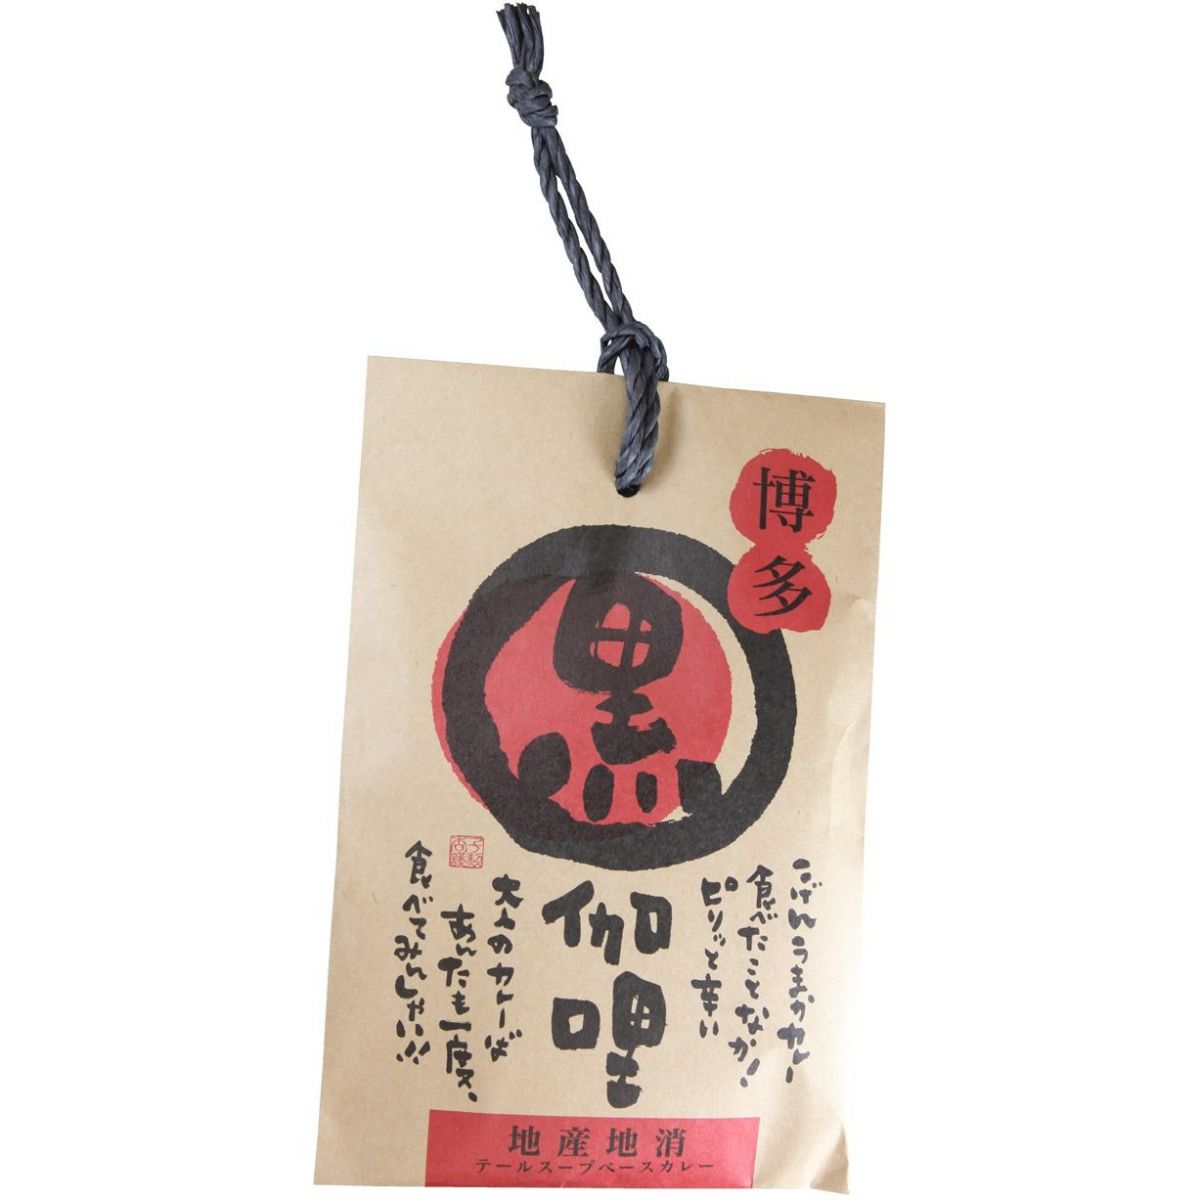 博多
黒
伽哩
こげんうまかカレー
食べたことなか!
ピリッと辛い
大人のカレーば
あんたも一度、
食べてみんしゃい!!
地産地消
テールスープベースカレー